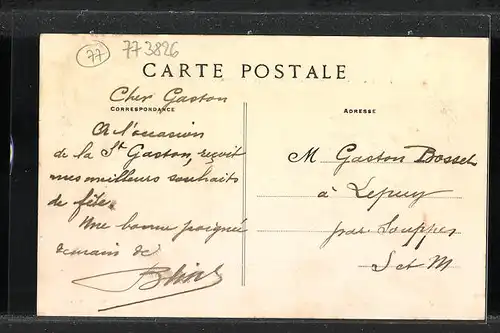 77
773826
CARTE POSTALE
Cher Gaston
CORRESPONDANCE
ADRESSE
A l'occasion
de la St Gaston, reçoit
mes meilleurs souhaits
de fête.
Une bonne poignée
de main de
M Gaston Bosset
à Lepuy
par Souppes
S et M